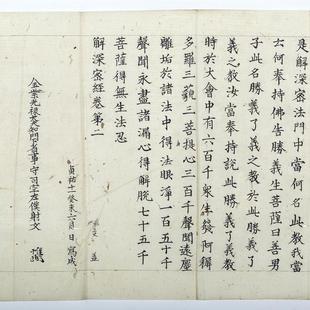 是解深密法門中當何名此教我當
云何奉持佛告勝義生菩薩曰善男
子此名勝義了義之教於此勝義了
義之教汝當奉持說此勝義了義教
時於大會中有六百千衆生發阿耨
多羅三藐三菩提心三百千聲聞遠塵
離垢於諸法中得法眼淨一百五十千
聲聞永盡諸漏心得解脫七十五千
菩薩得無生法忍
解深密經卷第二
貞祐十一癸未六月日寫成
金紫光祿大夫知門下省事守司空左僕射